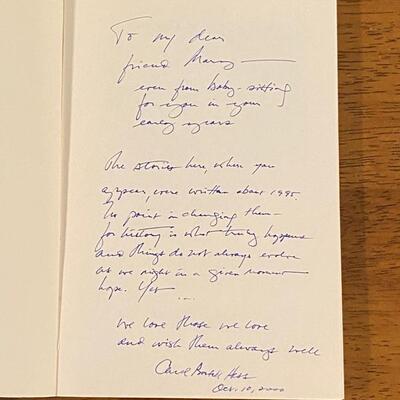 To my dear
friend Nancy —
even from baby-sitting
for you in your
early years
The stories here, when you
appear, were written about 1995.
No point in changing them —
for history is what truly happens
and things do not always evolve
as we might in a given moment
hope. Yet
...
we love those we love
and wish them always well
Carol Hess
Oct. 10, 2000